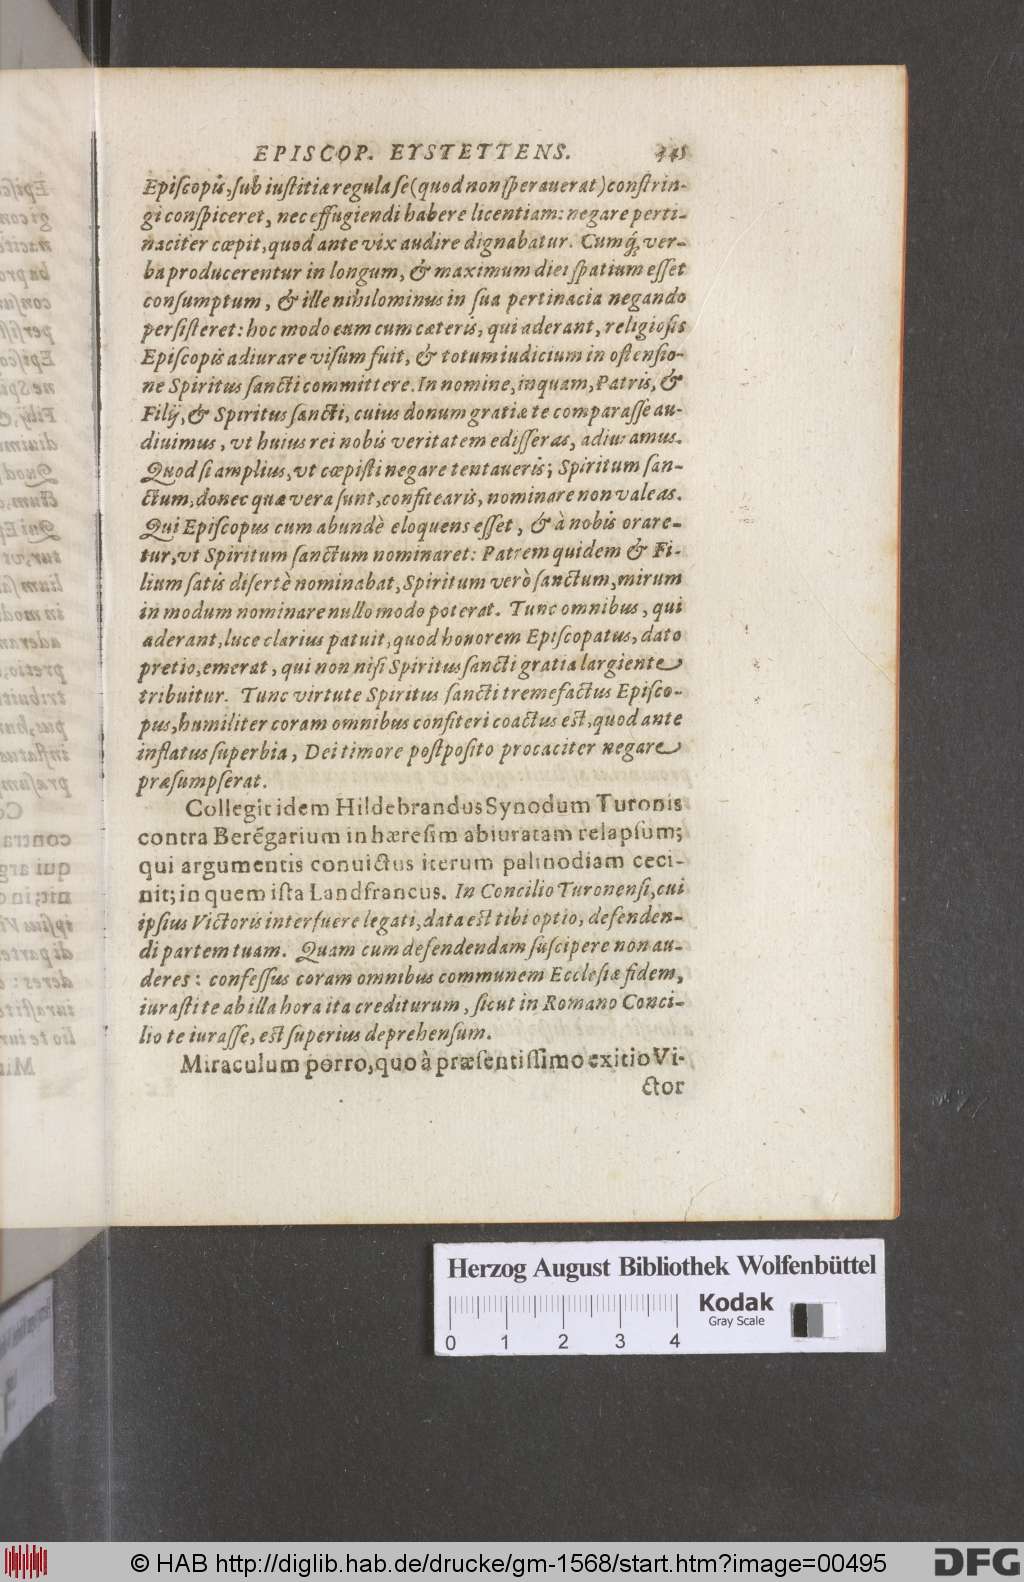 EPISCOP. EYSTETTENS. 445
Episcopus, sub iustitiæ regula se (quod non sperauerat) constrin-
gi conspiceret, nec effugiendi habere licentiam: negare perti-
naciter cœpit, quod ante vix audire dignabatur. Cumq́; ver-
ba producerentur in longum, & maximum diei spatium esset
consumptum, & ille nihilominus in sua pertinacia negando
persisteret: hoc modo eum cum cæteris, qui aderant, religiosis
Episcopis adiurare visum fuit, & totum iudicium in ostensio-
ne Spiritus sancti committere. In nomine, inquam, Patris, &
Filij, & Spiritus sancti, cuius donum gratiæ te comparasse au-
diuimus, vt huius rei nobis veritatem edisseras, adiuramus.
Quod si amplius, vt cœpisti negare tentaueris; Spiritum san-
ctum, donec quæ vera sunt, confitearis, nominare non valeas.
Qui Episcopus cum abundè eloquens esset, & à nobis orare-
tur, vt Spiritum sanctum nominaret: Patrem quidem & Fi-
lium satis disertè nominabat, Spiritum verò sanctum, mirum
in modum nominare nullo modo poterat. Tunc omnibus, qui
aderant, luce clarius patuit, quod honorem Episcopatus, dato
pretio, emerat, qui non nisi Spiritus sancti gratia largiente
tribuitur. Tunc virtute Spiritus sancti tremefactus Episco-
pus, humiliter coram omnibus confiteri coactus est, quod ante
inflatus superbia, Dei timore postposito procaciter negare
præsumpserat.
Collegit idem Hildebrandus Synodum Turonis
contra Berēgarium in hæresim abiuratam relapsum;
qui argumentis conuictus iterum palinodiam ceci-
nit; in quem ista Landfrancus. In Concilio Turonensi, cui
ipsius Victoris interfuere legati, data est tibi optio, defenden-
di partem tuam. Quam cum defendendam suscipere non au-
deres: confessus coram omnibus communem Ecclesiæ fidem,
iurasti te ab illa hora ita crediturum, sicut in Romano Conci-
lio te iurasse, est superius deprehensum.
Miraculum porro, quo à præsentissimo exitio Vi-
ctor
Herzog August Bibliothek Wolfenbüttel
Kodak
Gray Scale
0 1 2 3 4
© HAB http://diglib.hab.de/drucke/gm-1568/start.htm?image=00495
DFG